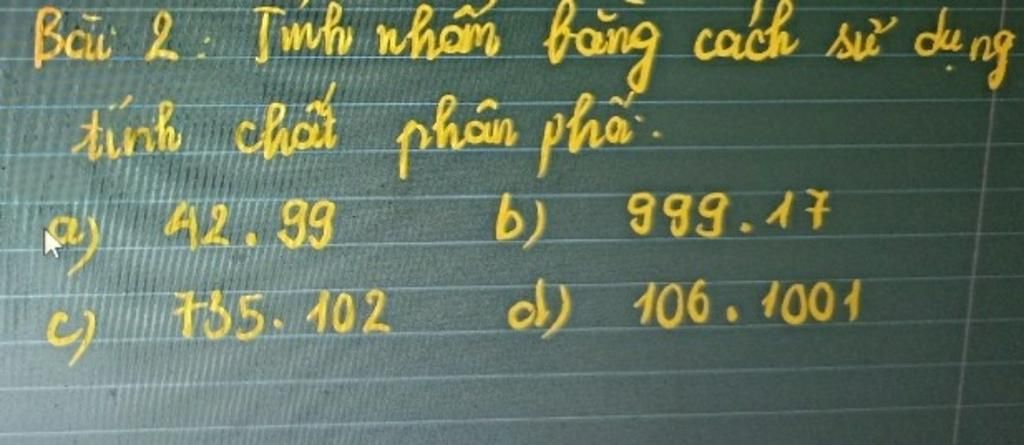 Bài 2: Tính nhẩm bằng cách sử dụng
tính chất phân phối.
a) 42.99 b) 999.17
c) 735.102 d) 106.1001